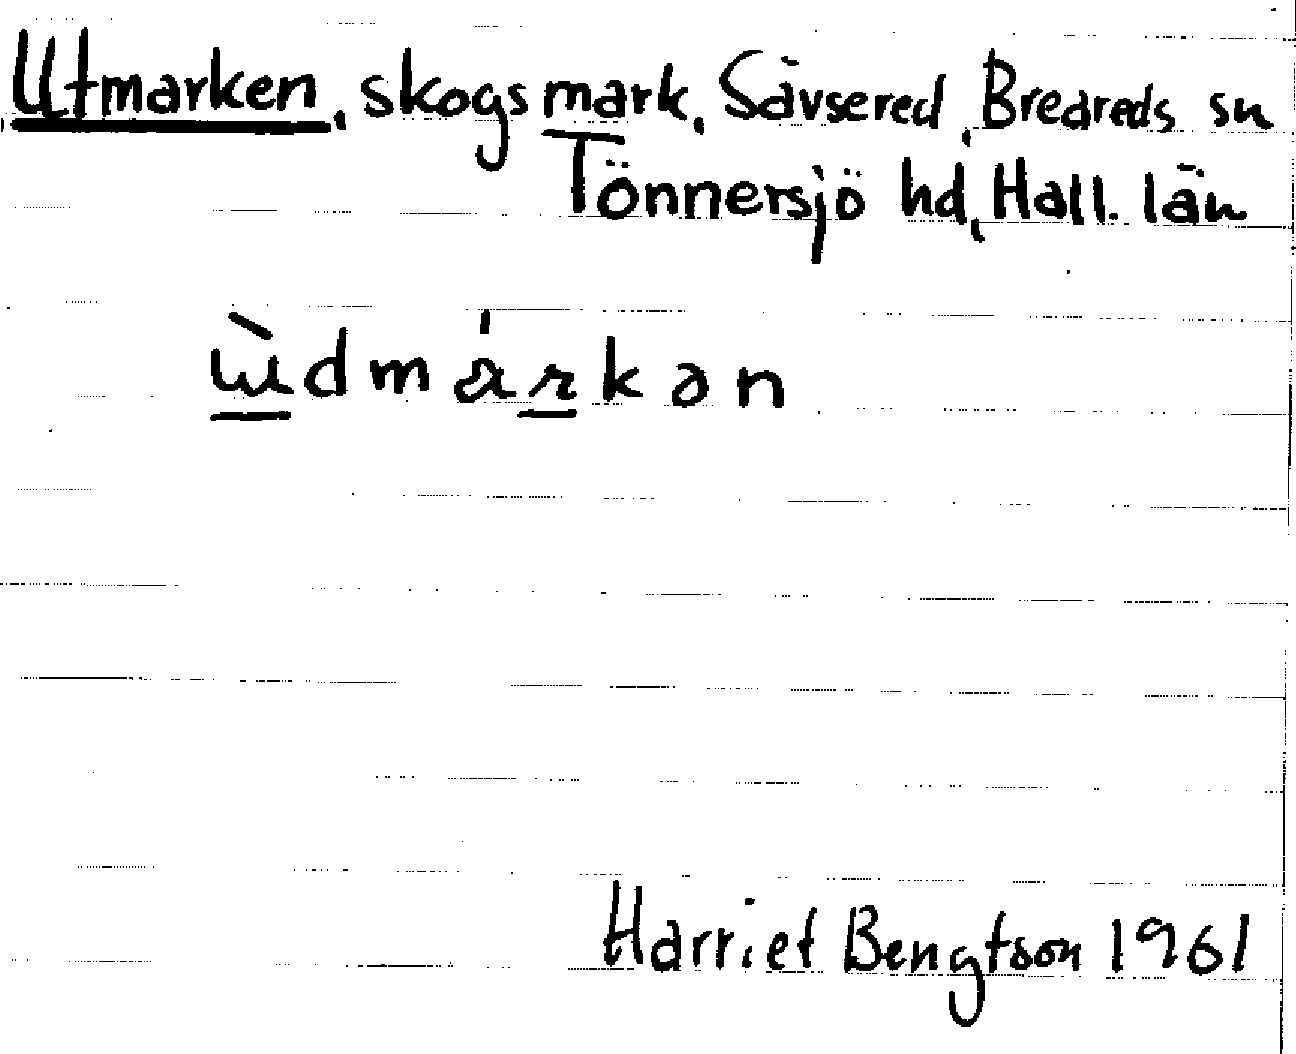 Utmarken, skogsmark, Sävsered, Breareds sn
Tönnersjö hd, Hall. län
ɯ̀dmárkən
Harriet Bengtson 1961